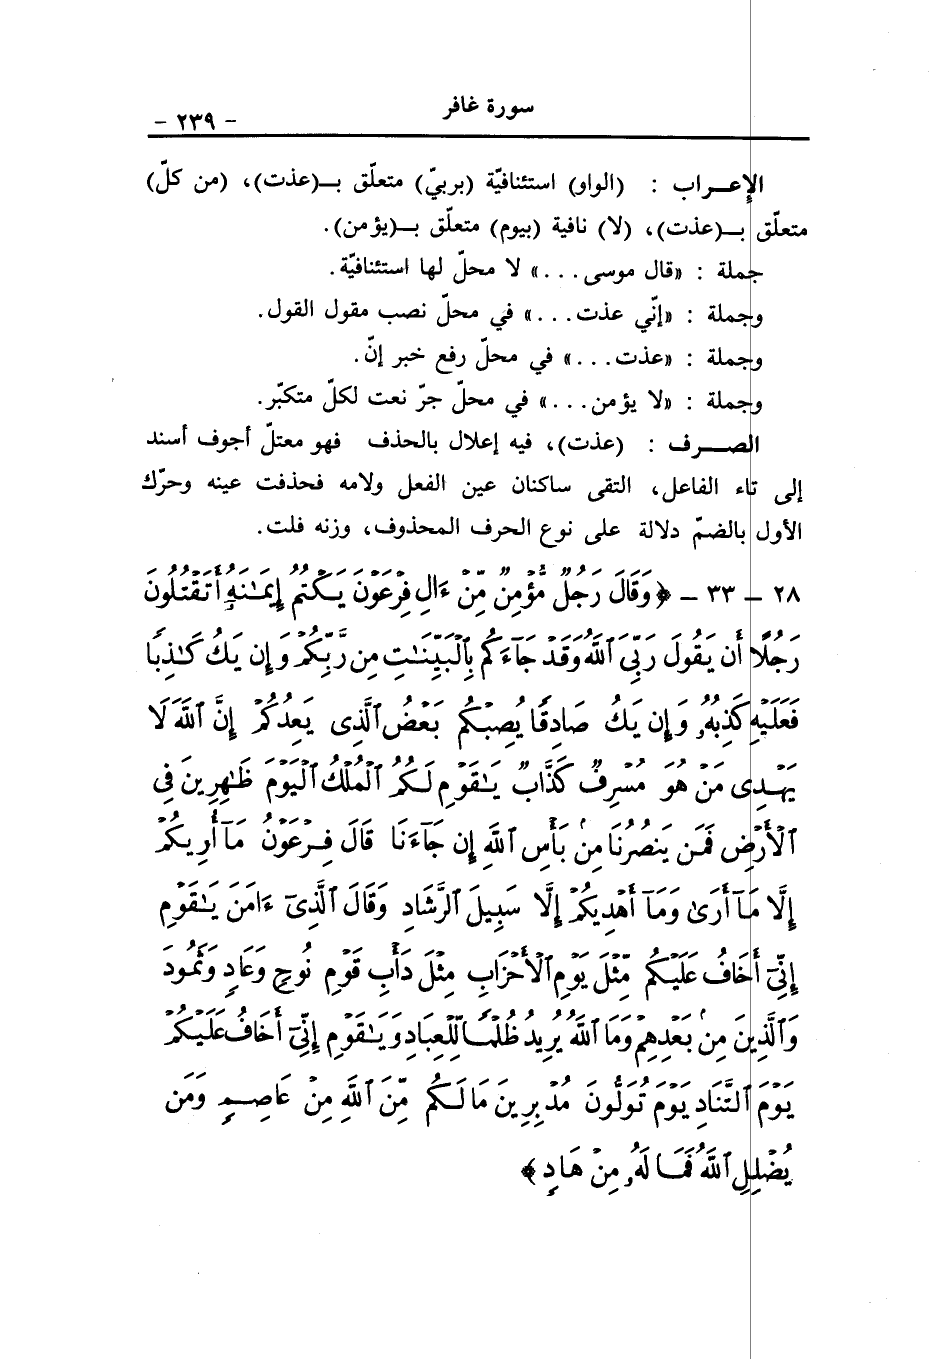 سورة غافر
- ٢٣٩ -
الإعـراب : (الواو) استئنافيّة (بربيّ) متعلّق بـ(عذت)، (من كلّ)
متعلّق بـ(عذت)، (لا) نافية (بيوم) متعلّق بـ(يؤمن).
جملة : «قال موسى...» لا محلّ لها استئنافيّة.
وجملة : «إنّي عذت...» في محلّ نصب مقول القول.
وجملة : «عذت...» في محلّ رفع خبر إنّ.
وجملة : «لا يؤمن...» في محلّ جرّ نعت لكلّ متكبّر.
الصـرف : (عذت)، فيه إعلال بالحذف فهو معتلّ أجوف أسند
إلى تاء الفاعل، التقى ساكنان عين الفعل ولامه فحذفت عينه وحرّك
الأول بالضمّ دلالة على نوع الحرف المحذوف، وزنه فلت.
٢٨ - ٣٣ - ﴿وَقَالَ رَجُلٌ مُّؤْمِنٌ مِّنْ ءَالِ فِرْعَوْنَ يَكْتُمُ إِيمَٰنَهُۥٓ أَتَقْتُلُونَ
رَجُلًا أَن يَقُولَ رَبِّىَ ٱللَّهُ وَقَدْ جَآءَكُم بِٱلْبَيِّنَٰتِ مِن رَّبِّكُمْ وَإِن يَكُ كَٰذِبًا
فَعَلَيْهِ كَذِبُهُۥ وَإِن يَكُ صَادِقًا يُصِبْكُم بَعْضُ ٱلَّذِى يَعِدُكُمْ إِنَّ ٱللَّهَ لَا
يَهْدِى مَنْ هُوَ مُسْرِفٌ كَذَّابٌ يَٰقَوْمِ لَكُمُ ٱلْمُلْكُ ٱلْيَوْمَ ظَٰهِرِينَ فِى
ٱلْأَرْضِ فَمَن يَنصُرُنَا مِنۢ بَأْسِ ٱللَّهِ إِن جَآءَنَا قَالَ فِرْعَوْنُ مَآ أُرِيكُمْ
إِلَّا مَآ أَرَىٰ وَمَآ أَهْدِيكُمْ إِلَّا سَبِيلَ ٱلرَّشَادِ وَقَالَ ٱلَّذِىٓ ءَامَنَ يَٰقَوْمِ
إِنِّىٓ أَخَافُ عَلَيْكُم مِّثْلَ يَوْمِ ٱلْأَحْزَابِ مِثْلَ دَأْبِ قَوْمِ نُوحٍ وَعَادٍ وَثَمُودَ
وَٱلَّذِينَ مِنۢ بَعْدِهِمْ وَمَا ٱللَّهُ يُرِيدُ ظُلْمًا لِّلْعِبَادِ وَيَٰقَوْمِ إِنِّىٓ أَخَافُ عَلَيْكُمْ
يَوْمَ ٱلتَّنَادِ يَوْمَ تُوَلُّونَ مُدْبِرِينَ مَا لَكُم مِّنَ ٱللَّهِ مِنْ عَاصِمٍ وَمَن
يُضْلِلِ ٱللَّهُ فَمَا لَهُۥ مِنْ هَادٍ﴾